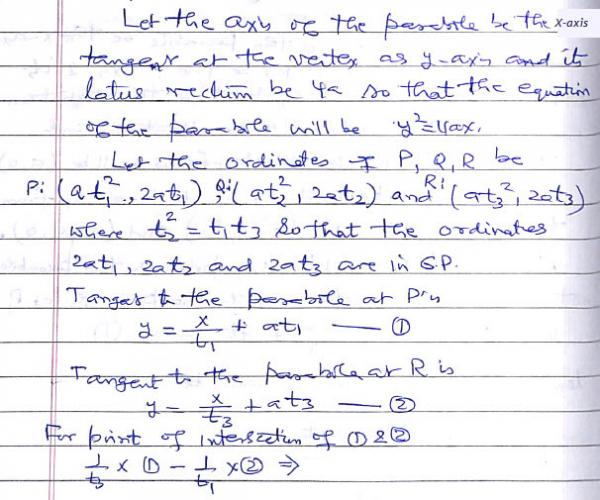 Let the axis of the parabola be the x-axis
tangent at the vertex as y-axis and its
latus rectum be 4a so that the equation
of the parabola will be y²=4ax.
Let the ordinates of P, Q, R be
P: (at₁², 2at₁), Q: (at₂², 2at₂) and R: (at₃², 2at₃)
where t₂² = t₁t₃ so that the ordinates
2at₁, 2at₂ and 2at₃ are in G.P.
Tangent to the parabola at P is
y = x/t₁ + at₁ — ①
Tangent to the parabola at R is
y = x/t₃ + at₃ — ②
For point of intersection of ① & ②
1/t₃ × ① - 1/t₁ × ② ⇒